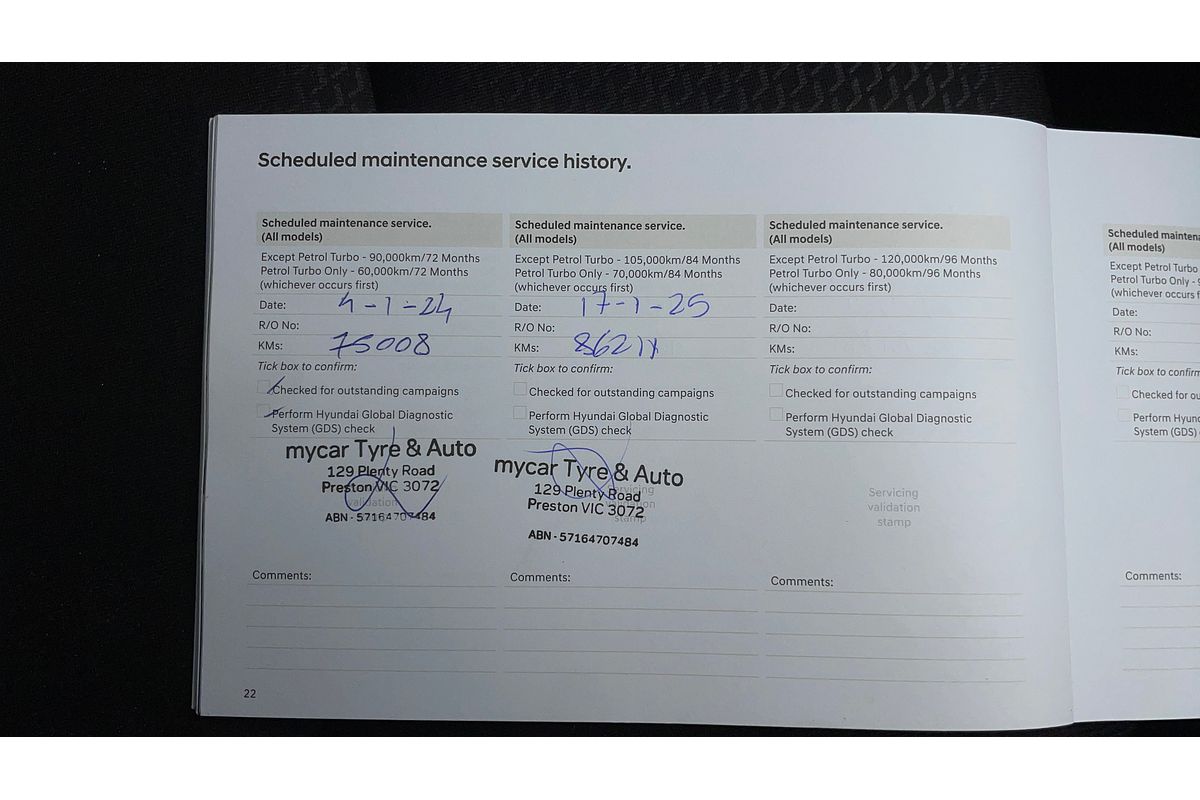 Scheduled maintenance service history.
Scheduled maintenance service.
(All models)
Except Petrol Turbo - 90,000km/72 Months
Petrol Turbo Only - 60,000km/72 Months
(whichever occurs first)
Date: 4-1-24
R/O No:
KMs: 75008
Tick box to confirm:
Checked for outstanding campaigns
Perform Hyundai Global Diagnostic
System (GDS) check
mycar Tyre & Auto
129 Plenty Road
Preston VIC 3072
validation
ABN - 57164707484
Comments:
Scheduled maintenance service.
(All models)
Except Petrol Turbo - 105,000km/84 Months
Petrol Turbo Only - 70,000km/84 Months
(whichever occurs first)
Date: 17-1-25
R/O No:
KMs:
Tick box to confirm:
Checked for outstanding campaigns
Perform Hyundai Global Diagnostic
System (GDS) check
mycar Tyre & Auto
Servicing
129 Plenty Road
validation
Preston VIC 3072
stamp
ABN - 57164707484
Comments:
Scheduled maintenance service.
(All models)
Except Petrol Turbo - 120,000km/96 Months
Petrol Turbo Only - 80,000km/96 Months
(whichever occurs first)
Date:
R/O No:
KMs:
Tick box to confirm:
Checked for outstanding campaigns
Perform Hyundai Global Diagnostic
System (GDS) check
Servicing
validation
stamp
Comments:
22
Scheduled
(All models)
Except Petrol Turbo
Petrol Turbo Only -
(whichever occurs
Date:
R/O No:
KMs:
Tick box to
Checked for
Perform
System (GDS)
Comments: